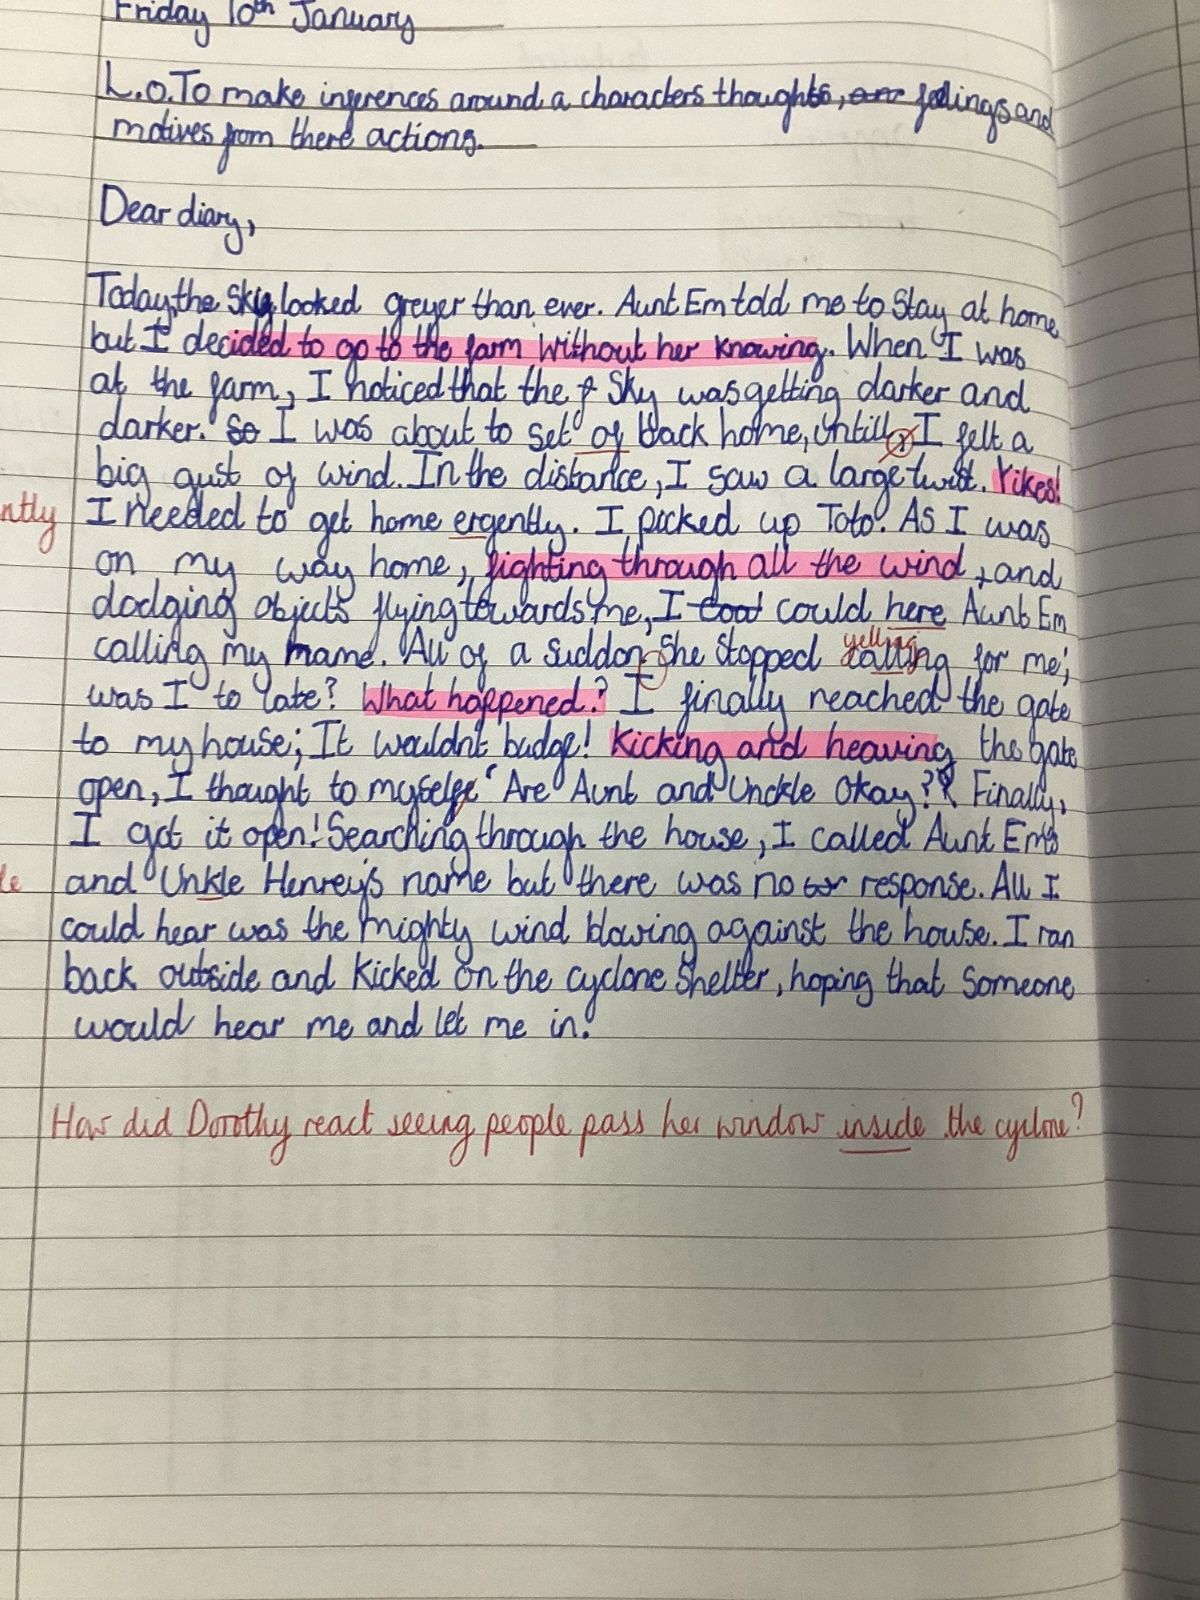 Friday 10th January
L.o.To make inferences around a characters thoughts, are feelings and
motives from there actions.
Dear diary,
Today, the sky looked greyer than ever. Aunt Em told me to Stay at home
but I decided to go to the farm without her knowing. When I was
at the farm, I noticed that the Sky was getting darker and
darker. So I was about to set of back home, Untill I felt a
big gust of wind. In the distance, I saw a large twist. Yikes!
ntly
I needed to get home ergently. I picked up Toto. As I was
on my way home, fighting through all the wind, and
dodging objects flying towards me, I could here Aunt Em
yelling
calling my name. All of a suddon She stopped calling for me;
was I to late? What happened? I finally reached the gate
to my house; It wouldn't budge! Kicking and heaving the gate
open, I thought to myself 'Are Aunt and Unckle Okay?' Finally,
I got it open! Searching through the house, I called Aunt Em's
le
and Unkle Henrey's name but there was no response. All I
could hear was the mighty wind blowing against the house. I ran
back outside and Kicked on the cyclone Shelter, hoping that Someone
would hear me and let me in.
How did Dorothy react seeing people pass her window inside the cyclone?